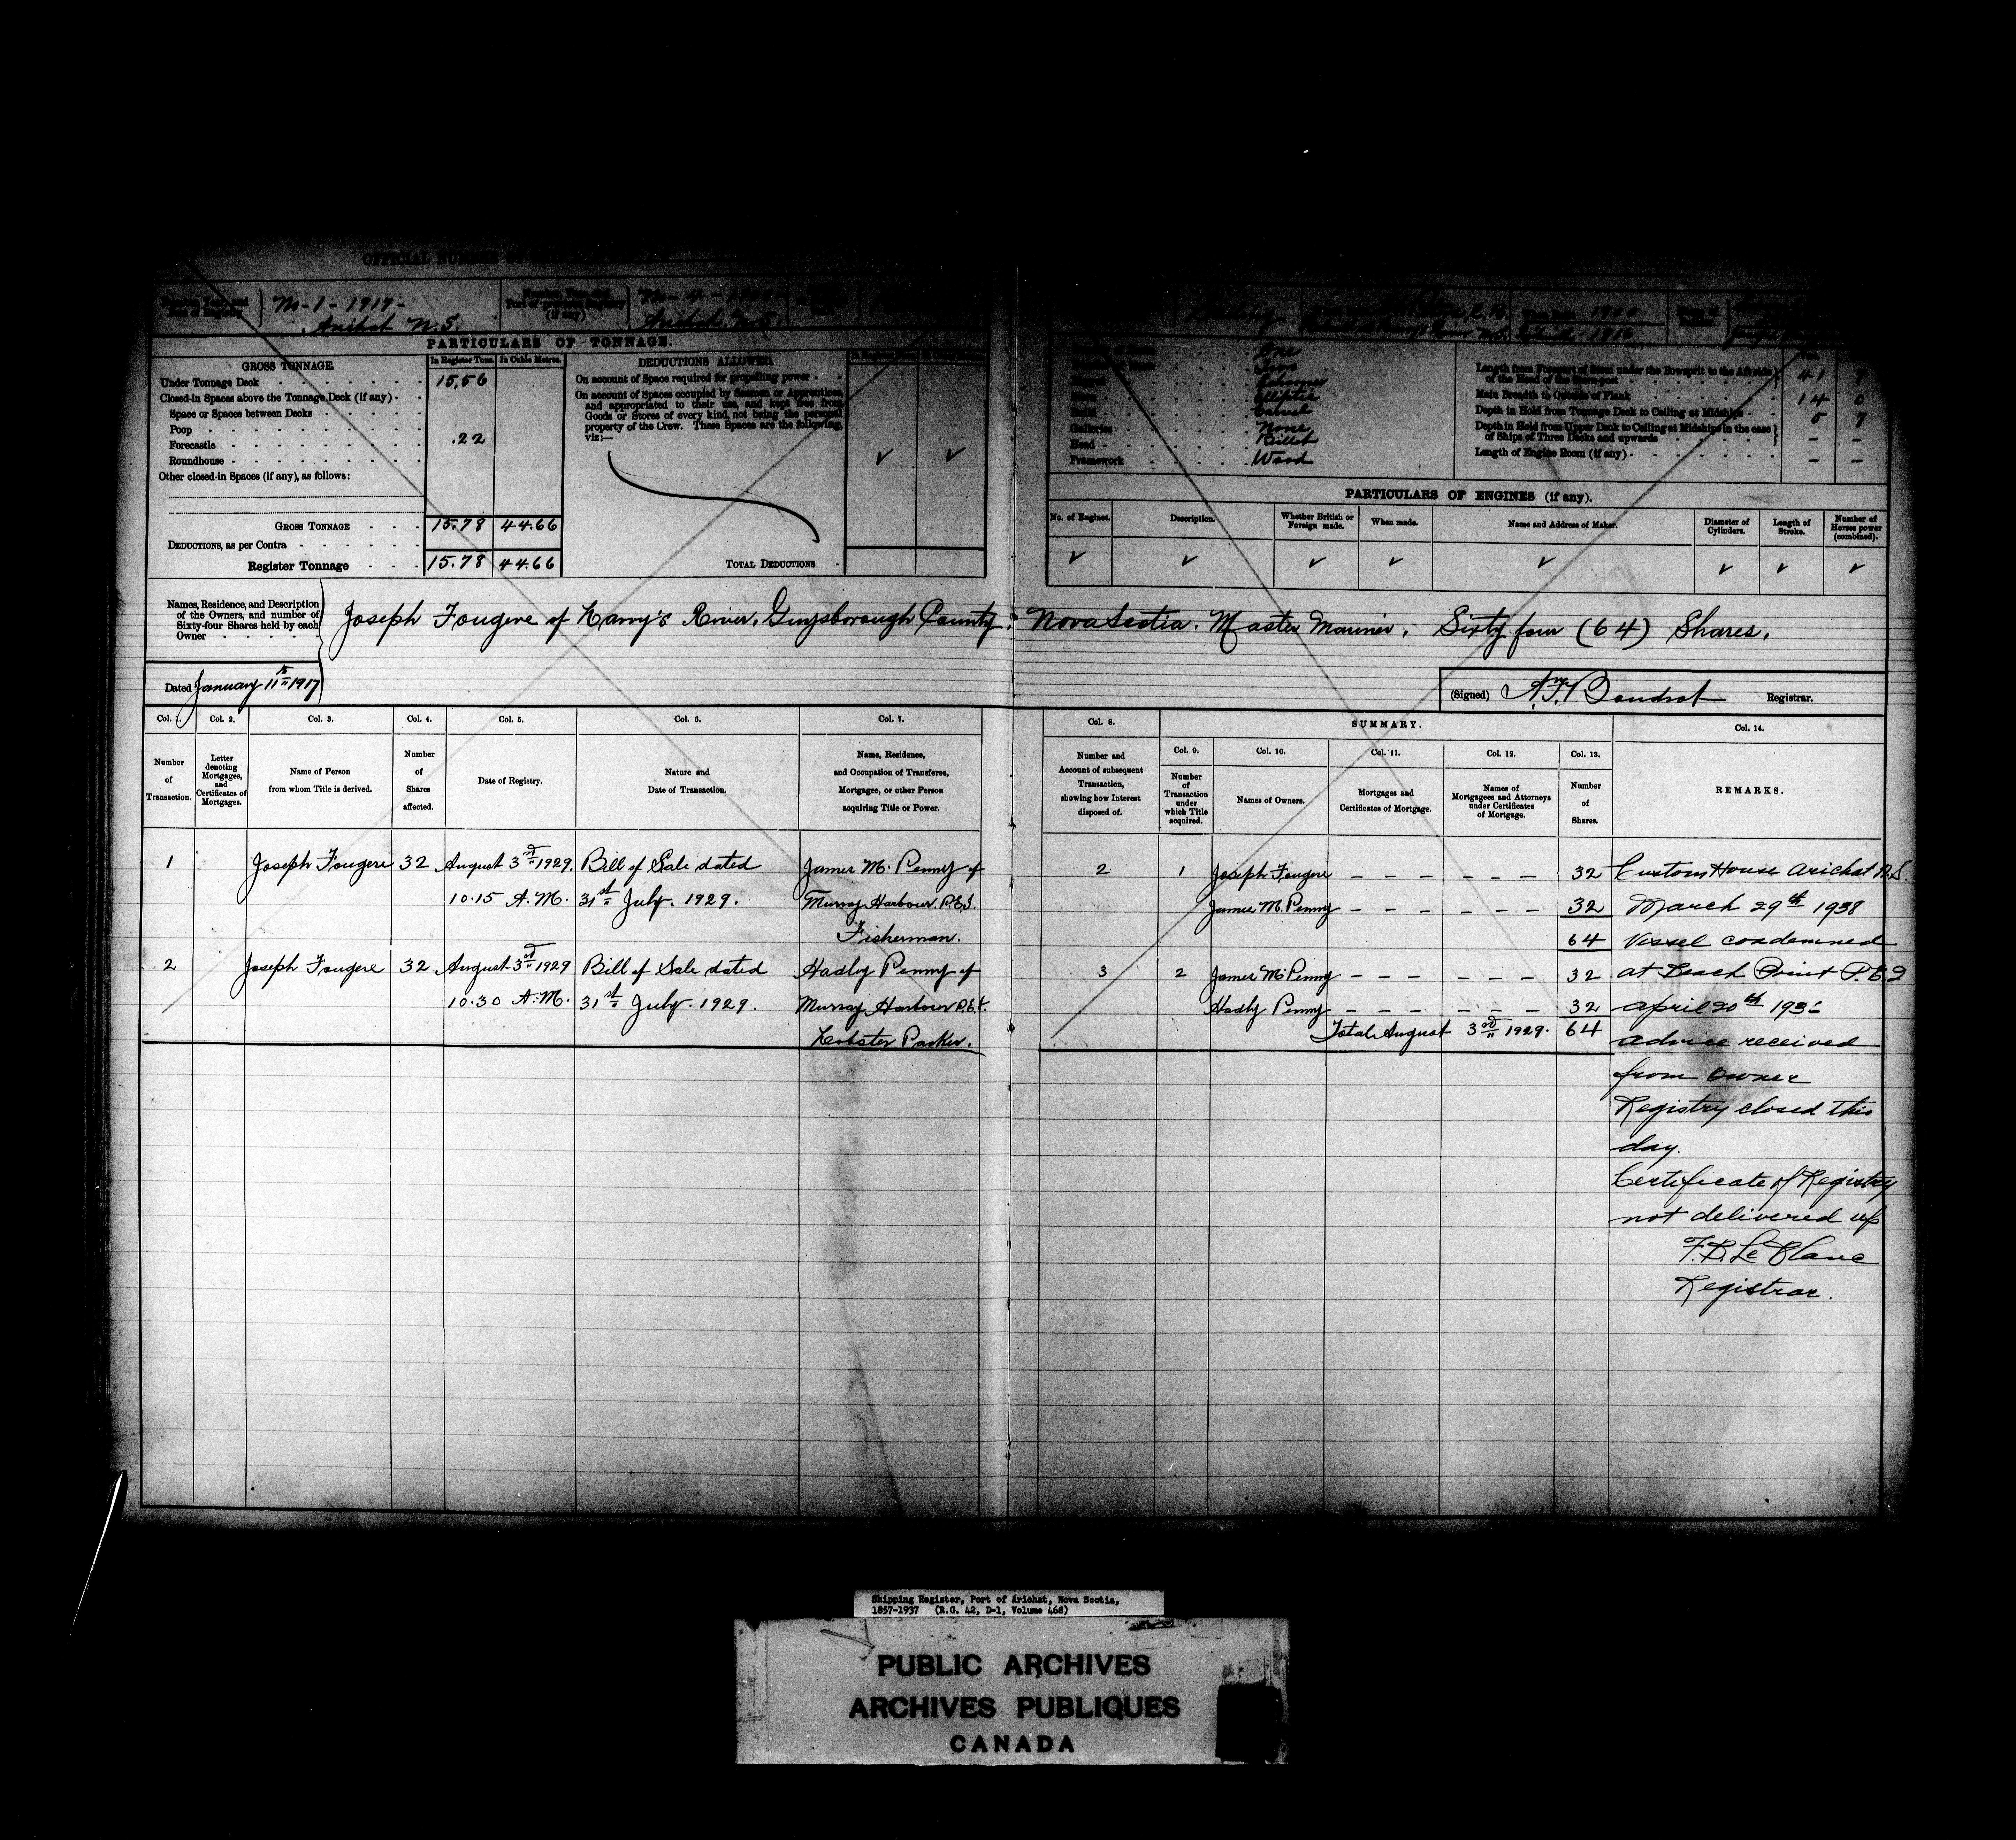 OFFICIAL NUMBER OF
No-1-1917-
Arichat N.S.
Port of
(if any)
No-4-
Arichat N.S.
PARTICULARS OF TONNAGE.
GROSS TONNAGE.
In Register Tons.
In Cubic Metres.
DEDUCTIONS ALLOWED.
Under Tonnage Deck
15.56
Closed-in Spaces above the Tonnage Deck (if any)
Space or Spaces between Decks
Poop
Forecastle
.22
Roundhouse
Other closed-in Spaces (if any), as follows:
GROSS TONNAGE
15.78
44.66
DEDUCTIONS, as per Contra
Register Tonnage
15.78
44.66
On account of Space required for propelling power
On account of Spaces occupied by Seamen or Apprentices,
and appropriated to their use, and kept free from
Goods or Stores of every kind, not being the personal
property of the Crew. These Spaces are the following,
viz:—
✓ ✓
TOTAL DEDUCTIONS
One
Two
Schooner
Elliptic
Carvel
Galleries None
Head Billet
Framework Wood
Length from Forepart of Stem under the Bowsprit to the Aftside
of the Head of the Stern-post
41
Main Breadth to Outside of Plank
14 0
Depth in Hold from Tonnage Deck to Ceiling at Midships
5 7
Depth in Hold from Upper Deck to Ceiling at Midships in the case
of Ships of Three Decks and upwards
– –
Length of Engine Room (if any)
– –
PARTICULARS OF ENGINES (if any).
No. of Engines.
Description.
Whether British or
Foreign made.
When made.
Name and Address of Maker.
Diameter of
Cylinders.
Length of
Stroke.
Number of
Horses power
(combined).
✓ ✓ ✓ ✓ ✓ ✓ ✓ ✓
Names, Residence, and Description
of the Owners, and number of
Sixty-four Shares held by each
Owner
Joseph Fougere of Larry's River, Guysborough County, Nova Scotia. Master Mariner. Sixty four (64) Shares.
Dated January 11th 1917
(Signed)
Registrar.
Col. 1.
Col. 2.
Col. 3.
Col. 4.
Col. 5.
Col. 6.
Col. 7.
Number
of
Transaction.
Letter
denoting
Mortgages,
and
Certificates of
Mortgages.
Name of Person
from whom Title is derived.
Number
of
Shares
affected.
Date of Registry.
Nature and
Date of Transaction.
Name, Residence,
and Occupation of Transferee,
Mortgages, or other Person
acquiring Title or Power.
1 Joseph Fougere 32 August 3rd 1929. Bill of Sale dated James M. Penny of
10.15 A.M. 31st July. 1929. Murray Harbour. P.E.I.
Fisherman.
2 Joseph Fougere 32 August 3rd 1929 Bill of Sale dated Hadly Penny of
10.30 A.M. 31st July. 1929. Murray Harbour P.E.I.
Lobster Packer.
Col. 8.
SUMMARY.
Col. 9.
Col. 10.
Col. 11.
Col. 12.
Col. 13.
Col. 14.
Number and
Account of subsequent
Transaction,
showing how Interest
disposed of.
Number
of
Transaction
under
which Title
acquired.
Names of Owners.
Mortgages and
Certificates of Mortgage.
Names of
Mortgagees and Attorneys
under Certificates
of Mortgage.
Number
of
Shares.
REMARKS.
2 1 Joseph Fougere – – – – – – 32
James M. Penny – – – – – – 32
64
3 2 James M. Penny – – – – – – 32
Hadly Penny – – – – – – 32
Total August 3rd 1929. 64
Custom House Arichat N.S.
March 29th 1938
Vessel condemned
at Beach Point P.E.I
April 20th
advice received
from owner
Registry closed this
day.
Certificate of Registry
not delivered up
F.B. Le Blanc
Registrar.
Shipping Register, Port of Arichat, Nova Scotia,
1857-1937 (R.G. 42, D-1, Volume 468)
PUBLIC ARCHIVES
ARCHIVES PUBLIQUES
CANADA